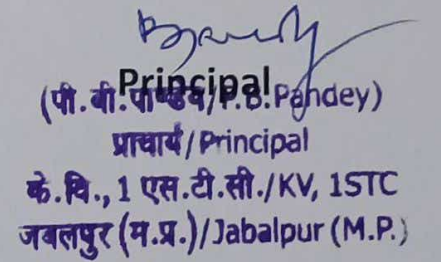 Principal
(पी.बी.पाण्डेय/P.B.Pandey)
प्राचार्य/Principal
के.वि., 1 एस.टी.सी./KV, 1STC
जबलपुर (म.प्र.)/Jabalpur (M.P.)